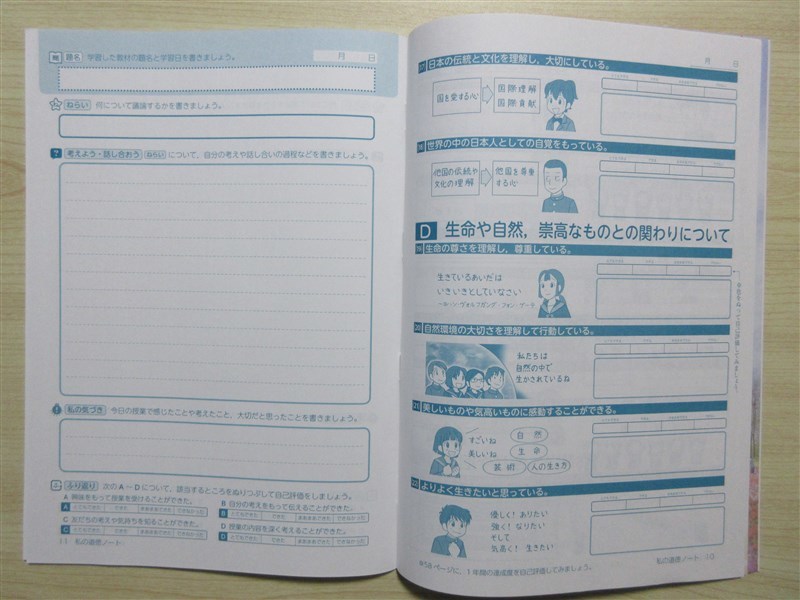 題名 学習した教材の題名と学習日を書きましょう。
月 日
ねらい 何について議論するかを書きましょう。
考えよう・話し合おう ねらい について、自分の考えや話し合いの過程などを書きましょう。
私の気づき 今日の授業で感じたことや考えたこと、大切だと思ったことを書きましょう。
ふり返り 次のA～Dについて、該当するところをぬりつぶして自己評価をしましょう。
A 興味をもって授業を受けることができた。
B 自分の考えをもって伝えることができた。
C 友だちの考えや気持ちを知ることができた。
D 授業の内容を深く考えることができた。
私の道徳ノート
月 日
17 日本の伝統と文化を理解し、大切にしている。
国を愛する心
国際理解
国際貢献
18 世界の中の日本人としての自覚をもっている。
他国の伝統や
文化の理解
他国を尊重
する心
D 生命や自然，崇高なものとの関わりについて
19 生命の尊さを理解し、尊重している。
生きているあいだは
いきいきとしていなさい
ヨハン・ヴォルフガング・フォン・ゲーテ
20 自然環境の大切さを理解して行動している。
私たちは
自然の中で
生かされているね
21 美しいものや気高いものに感動することができる。
すごいね
美しいね
自然
生命
芸術
人の生き方
22 よりよく生きたいと思っている。
優しく！ ありたい
強く！ なりたい
そして
気高く！ 生きたい
ページに、1年間の達成度を自己評価してみましょう。
私の道徳ノート